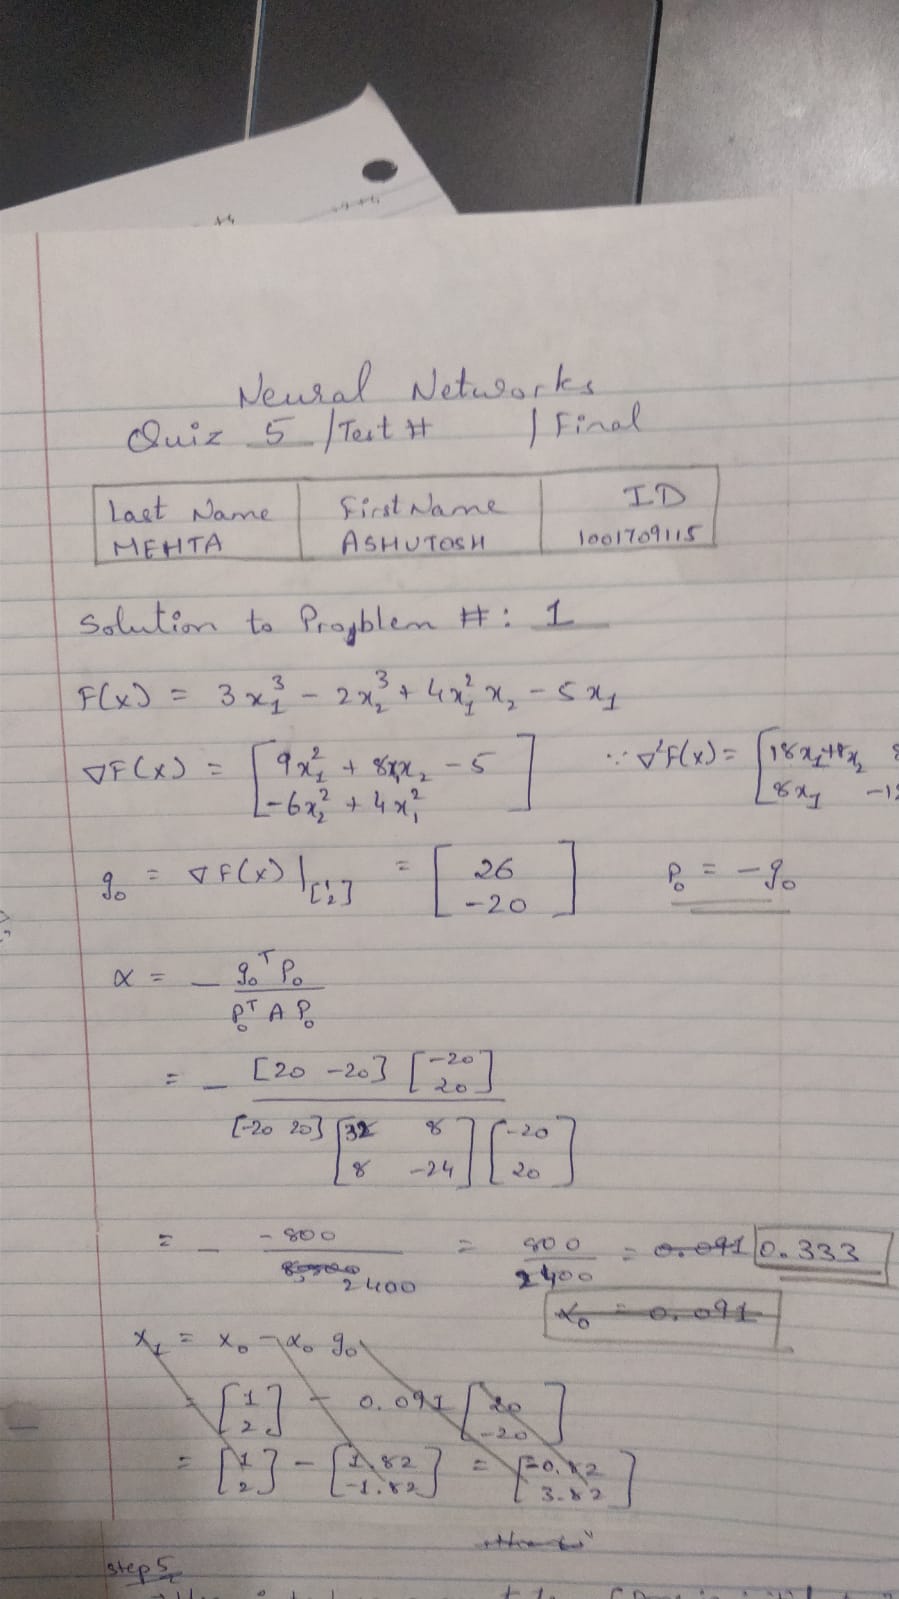 Neural Networks
Quiz 5 / Test # / Final
Last Name First Name ID
MEHTA ASHUTOSH 1001709115
Solution to Proyblem #: 1
F(x) = 3x₁³ - 2x₂³ + 4x₁²x₂ - 5x₁
∇F(x) = [9x₁² + 8x₁x₂ - 5 ; -6x₂² + 4x₁²] ∵ ∇²F(x) = [18x₁+8x₂ 8 ; 8x₁ -12
g₀ = ∇F(x)|[1 2] = [26 ; -20] P₀ = -g₀
α = - g₀ᵀ P₀ / P₀ᵀ A P₀
= - [20 -20] [-20 ; 20] / [-20 20] [32 8 ; 8 -24] [-20 ; 20]
= - -800 / 2400 = 800 / 2400 = 0.091 0.333
α₀ = 0.091
x₁ = x₀ - α₀ g₀
= [1 ; 2] - 0.091 [20 ; -20]
= [1 ; 2] - [1.82 ; -1.82] = [-0.82 ; 3.82]
step 5